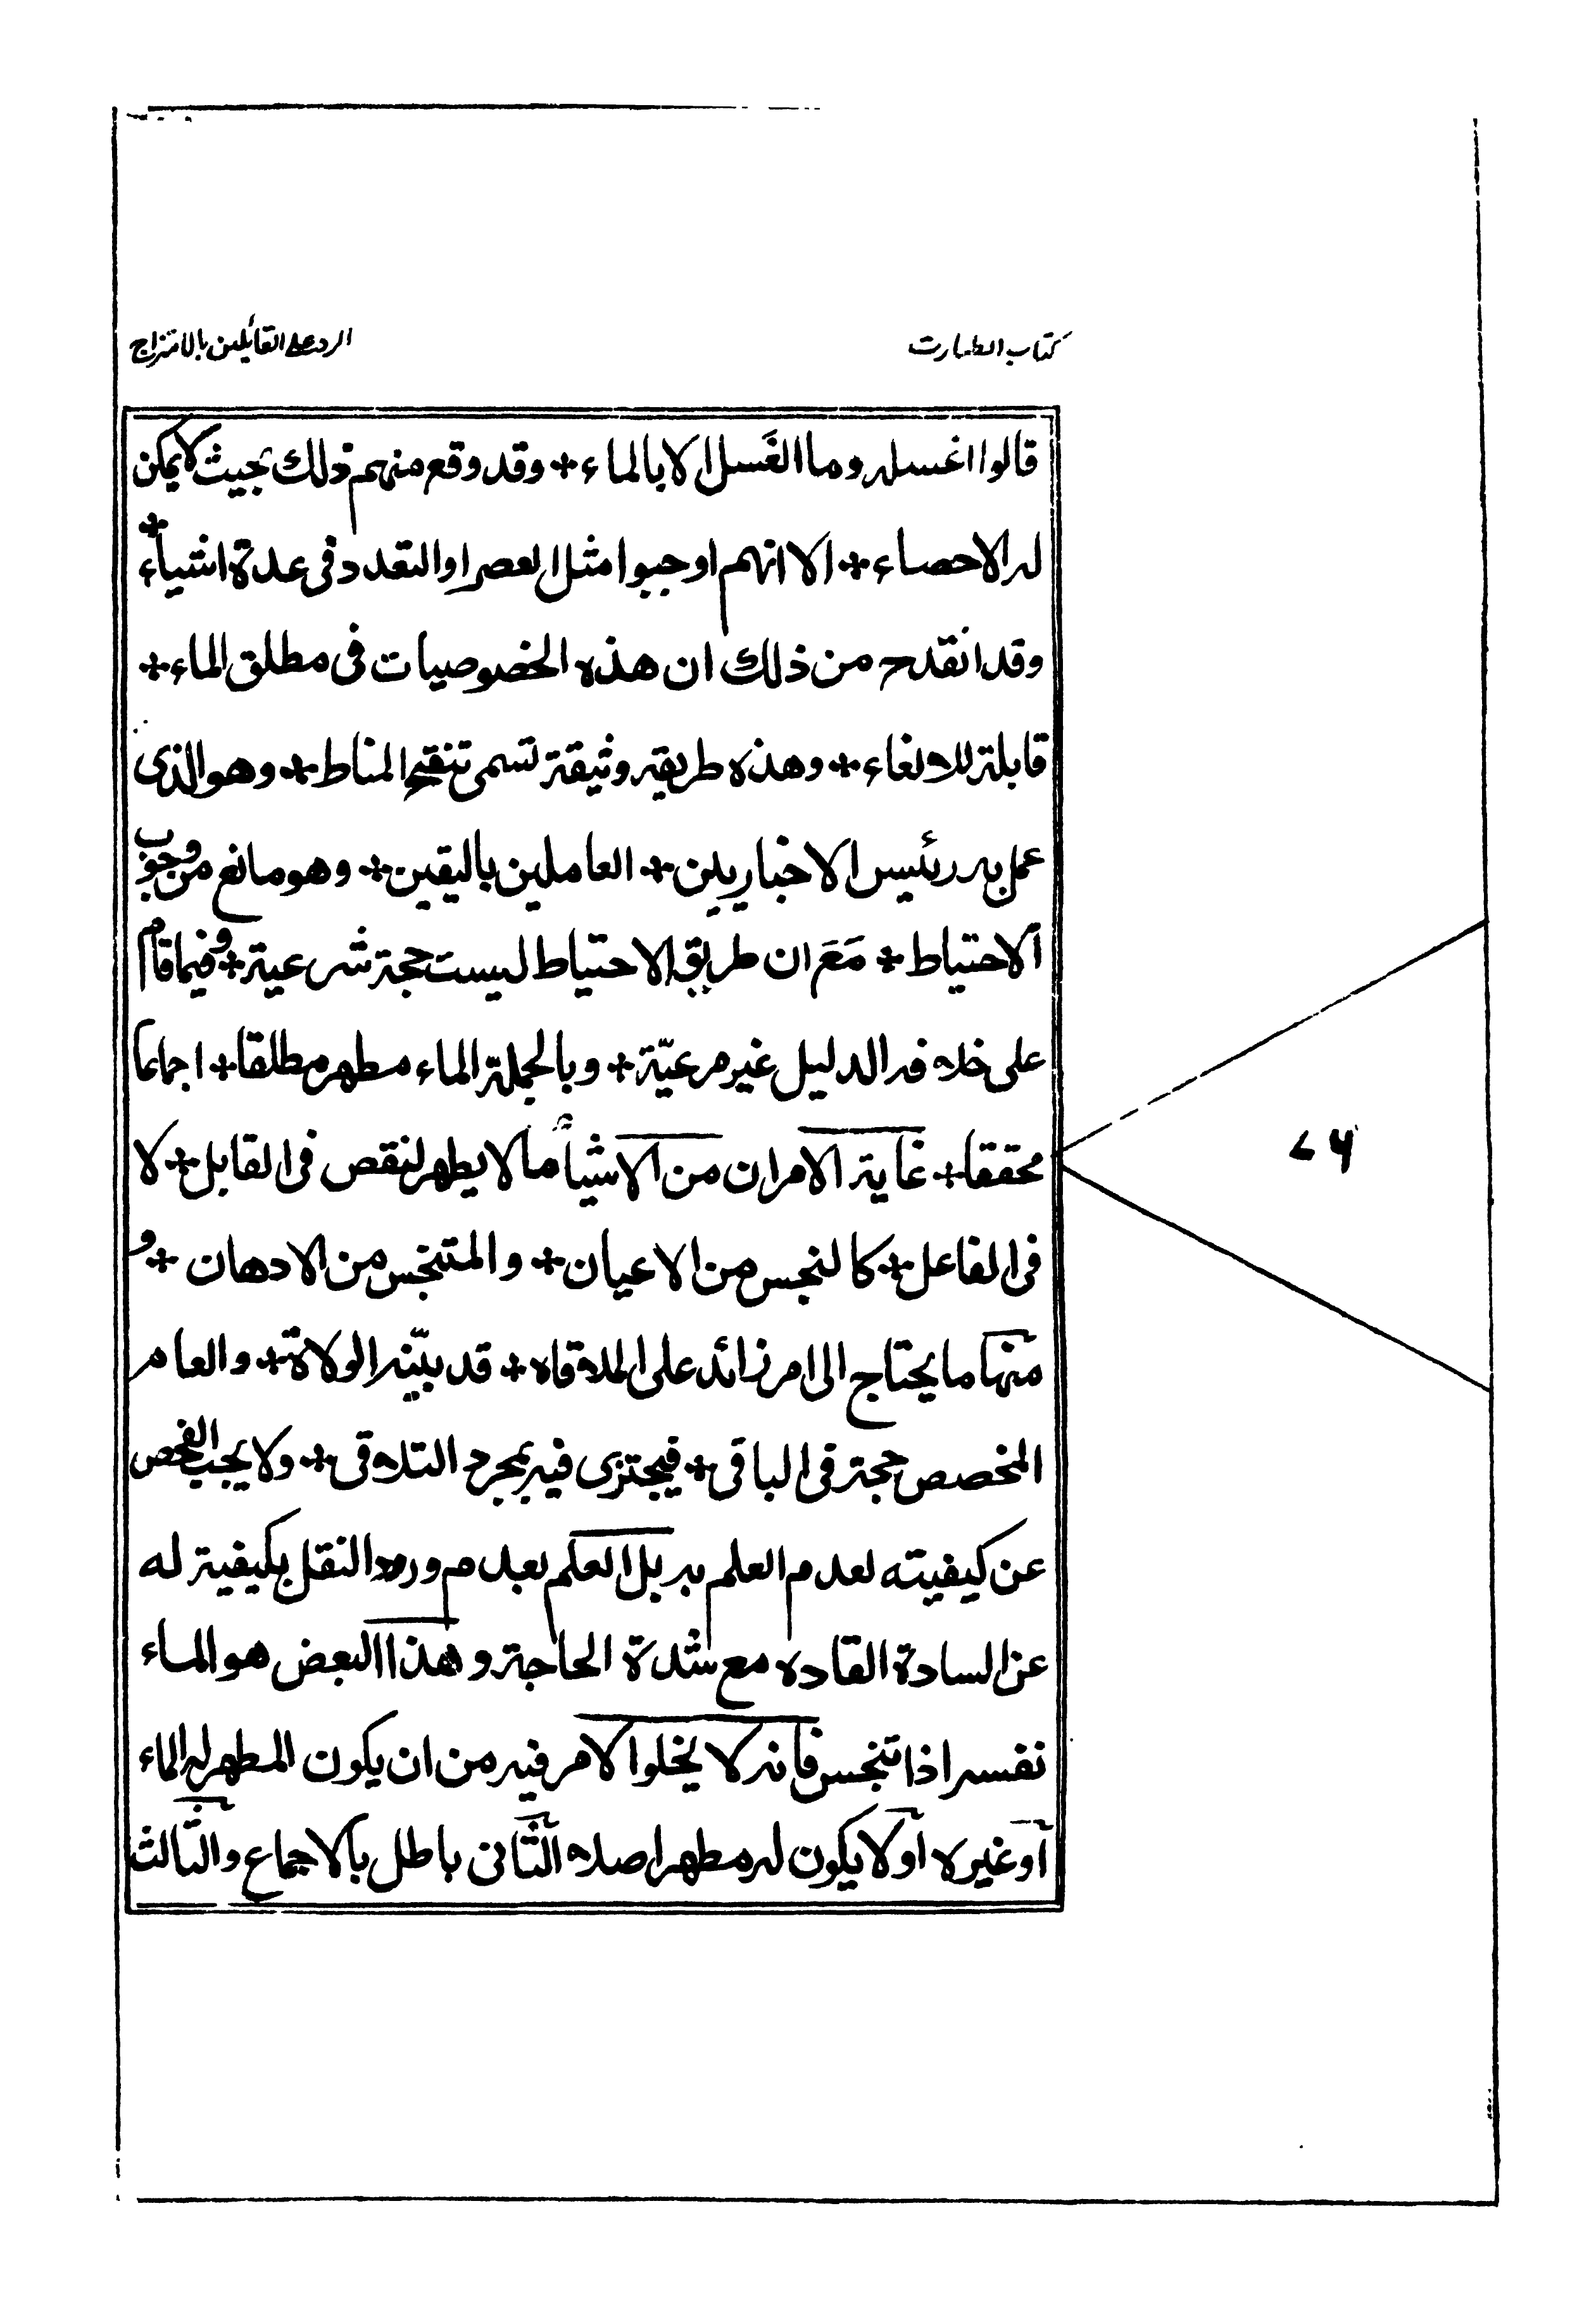 كتاب الطهارت
الرد على القائلين بالامتزاج
قالوا اغسله وما الغَسل الا بالماء + وقد وقع منهم ذلك بحيث لا يمكن
له الاحصاء + الا انهم اوجبوا مثل العصر او التعدد فى عدة اشياء +
وقد انقدح من ذلك ان هذه الخصوصيات فى مطلق الماء +
قابلة للالغاء + وهذه طريقة وثيقة تسمى تنقيح المناط + وهو الذى
عمل به رئيس الاخباريين + العاملين باليقين + وهو مانع من وجوب
الاحتياط + مَعَ ان طريق الاحتياط ليست حجة شرعية + وفيما قام
على خلافه الدليل غير مرعيّة + وبالجملة الماء مطهر مطلقا + اجماعا
محققا + غاية الامر ان من الاشياء ما لا يطهر لنقص فى القابل + لا
فى الفاعل + كالنجس من الاعيان + والمتنجس من الادهان + و
منها ما يحتاج الى امر زائد على الملاقاه + قد بيّنه الولاة + والعام
المخصص حجة فى الباقى + فيجتزى فيه بمجرد التلاقى + ولا يجب الفحص
عن كيفيته لعدم العلم به بل العلم بعدم ورود النقل بكيفية له
عن السادة القاده مع شدة الحاجة وهذا البعض هو الماء
نفسه اذا تنجس فانه لا يخلوا الامر فيه من ان يكون المطهر له الماء
او غيره او لا يكون له مطهر اصلا الثانى باطل بالاجماع والثالث
۷۶